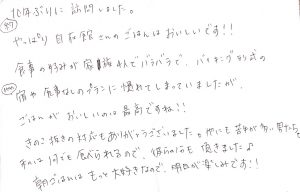 10年ぶりに訪問しました。
やっぱり 自在館さんのごはんはおいしいです!!
食事の好みが家族4人でバラバラで、バイキング形式の
宿や食事なしのプランに慣れてしまっていましたが、
ごはんがおいしいのは最高ですね!!
きのこ抜きの対応もありがとうございました。他にも苦手が多い
私は何でも食べられるので、頂きました♪
朝ごはんはもっと大好きなので、明日が楽しみです!!